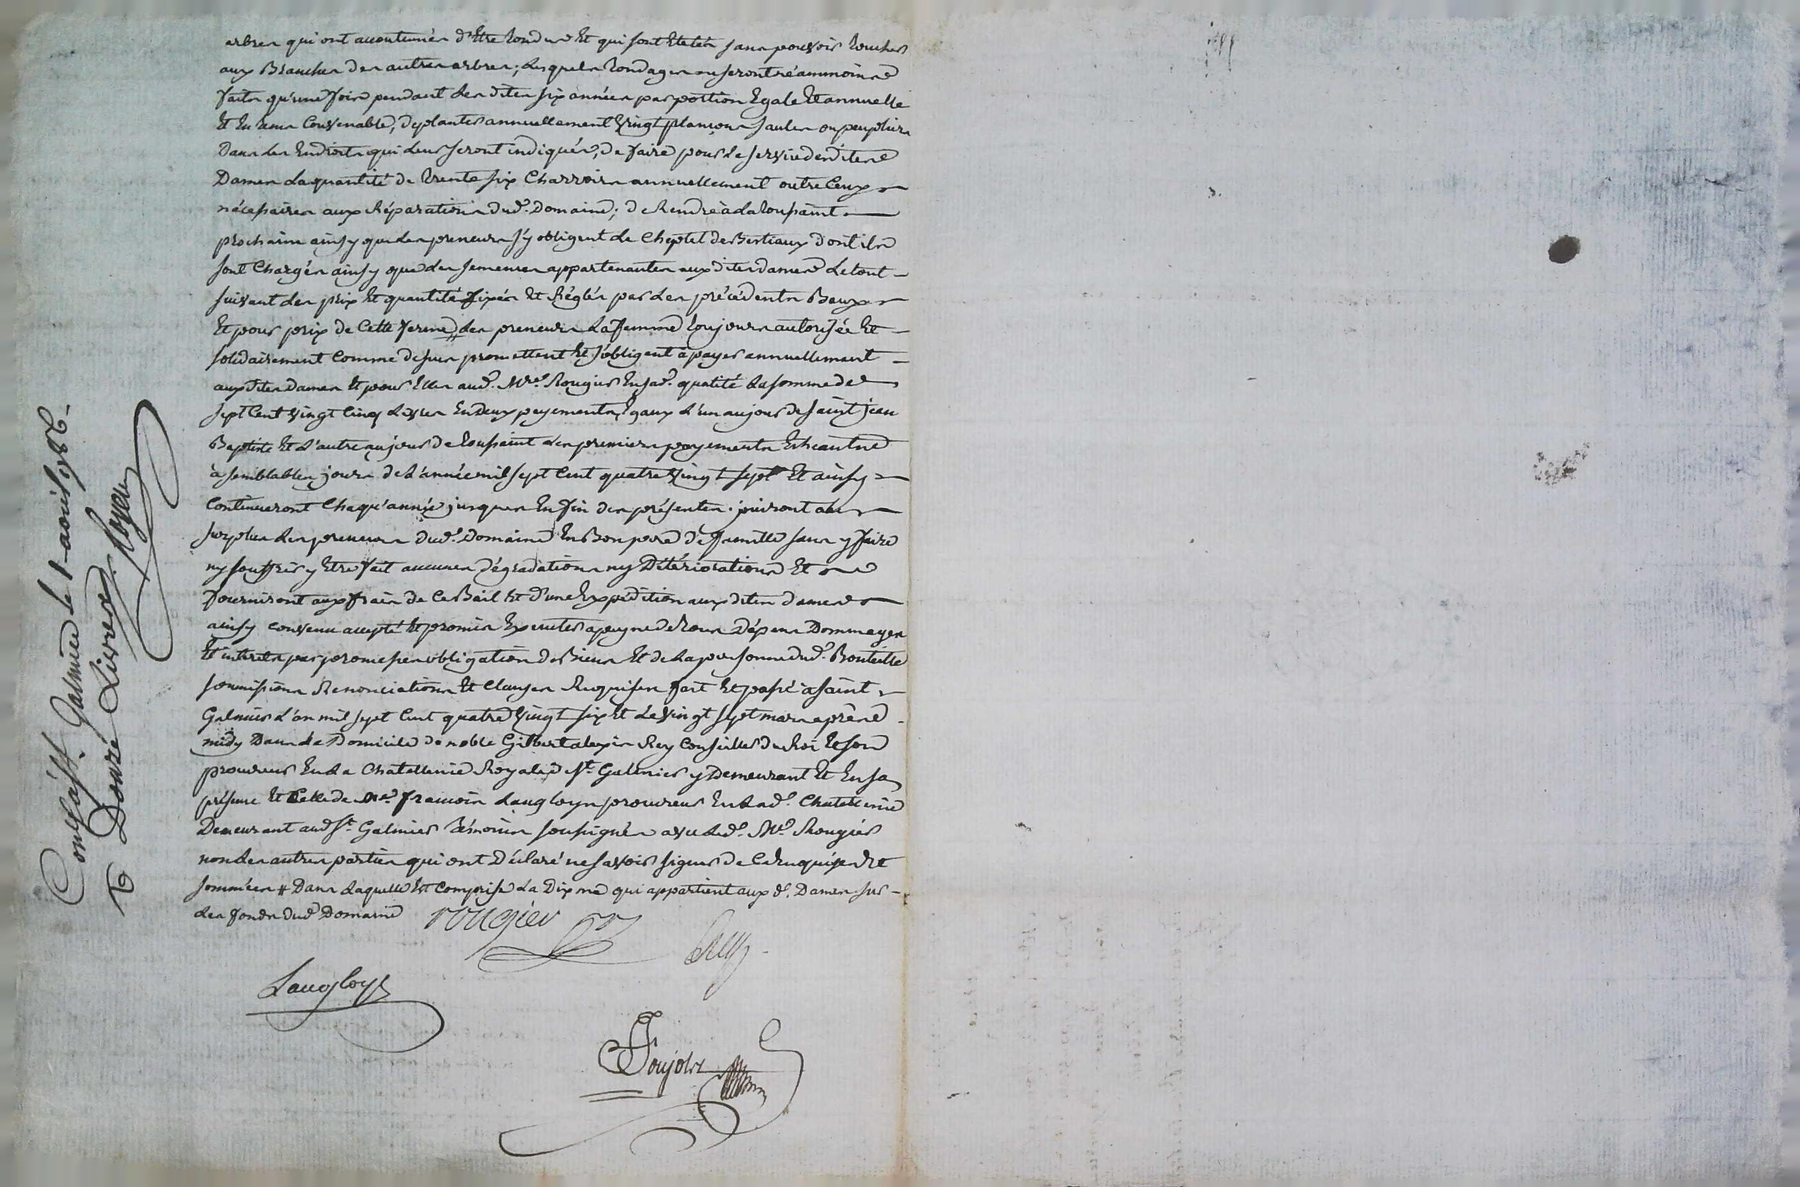 arbres qui ont accoutumés d'Etre tondus Et qui sont Etetés sans pouvoir toucher
aux Branches des autres arbres; lesquels tondages ne seront néammoins
faits qu'une fois pendant les dites six années par portion Egale Et annuelle
Et En tems Convenable, de planter annuellement Vingt plançons saules ou peupliers
Dans les Endroits qui leur seront indiqués, de faire pour le service desdites
Dames la quantité de trente six Charrois annuellement outre Ceux
nécessaires aux Réparations dud. Domaine; de Rendre à la toussaint
prochaine ainsy que les preneurs s'y obligent le Cheptel de Bestiaux dont ils
sont Chargés ainsy que des semences appartenantes aux dites dames le tout
suivant les prix Et quantité fixés Et Réglés par les précédents Baux
Et pour prix de Cette ferme # les preneurs la femme toujours autorisée Et
solidairement Comme dessus promettent Et s'obligent à payer annuellement
aux dites Dames Et pour Elles aud. Mre. Rougier En sad. qualité la somme de
sept Cent vingt Cinq Livres En deux payements Egaux l'un au jour de saint jean
Baptiste Et l'autre au jour de toussaint les premiers payements Echeants
à semblables jours de l'année mil sept Cent quatre Vingt sept Et ainsy
Continueront Chaqu'année jusques En fin des présentes. jouiront au
surplus les preneurs dud. Domaine En Bon pere de famille sans y faire
ny souffrir y Etre fait aucunes dégradations ny Détériorations Et
fourniront aux frais de Ce Bail Et d'une Expédition aux dites dames
ainsy convenu accepté Et promis Executer a peyne de tous Dépens Dommages
Et intérêts par promesses obligation de Biens Et de la personne dud. Bouteille
soumissions Renonciations Et Clauses Requises fait Et passé à saint
Galmier l'an mil sept Cent quatre Vingt six Et le Vingt sept mars après
midy Dans le Domicile de noble Gilbert alexis Rey Conseiller du Roi Et son
procureur En la Chatellenie Royale de St. Galmier y Demeurant Et En sa
présence Et Celle de Me. françois Langloys procureur En lad. Chatellenie
Demeurant aud. St. Galmier témoins soussignés avec led. Mre. Rougier
non les autres parties qui ont Déclaré ne savoir signer de Ce Enquises Et
sommées # Dans laquelle Est Comprise La Dixme qui appartient aux d. Dames sur
les fonds dud. Domaine
rougier
Rey
Langloys
Poujolx
Con. à St. Galmier le 1 avril 1786.
R Douze Livres